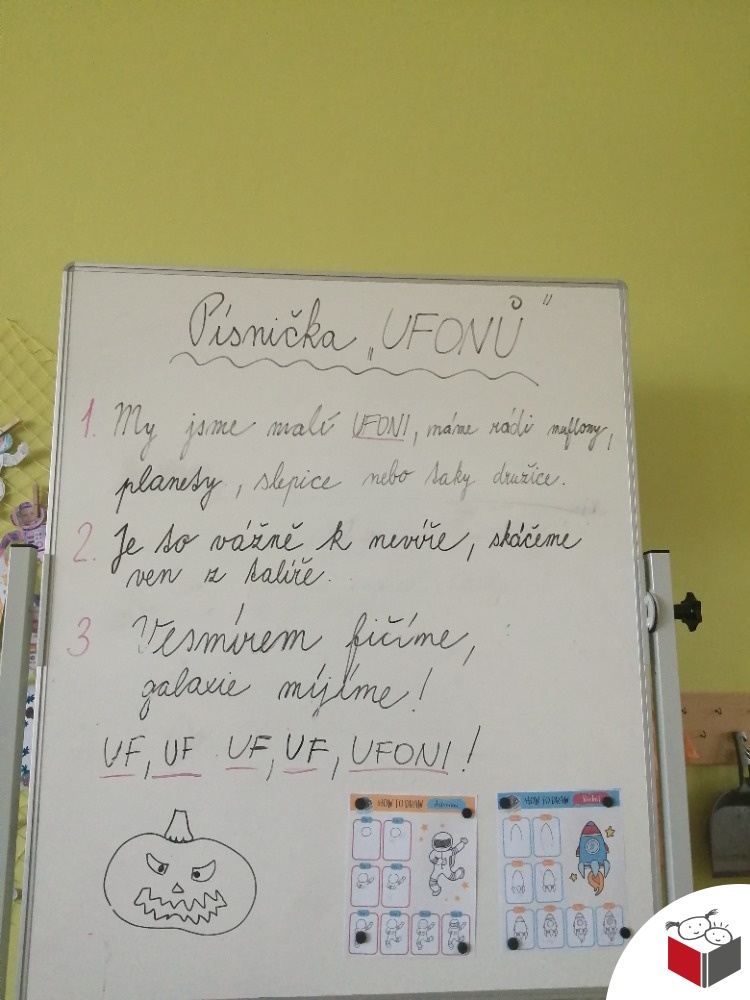 Písnička „UFONŮ"
1. My jsme malí UFONI, máme rádi muflony,
planety, slepice nebo taky družice.
2. Je to vážně k nevíře, skáčeme
ven z talíře.
3 Vesmírem fičíme,
galaxie míjíme!
UF, UF UF, UF, UFONI!
HOW TO DRAW Astronaut
HOW TO DRAW Rocket